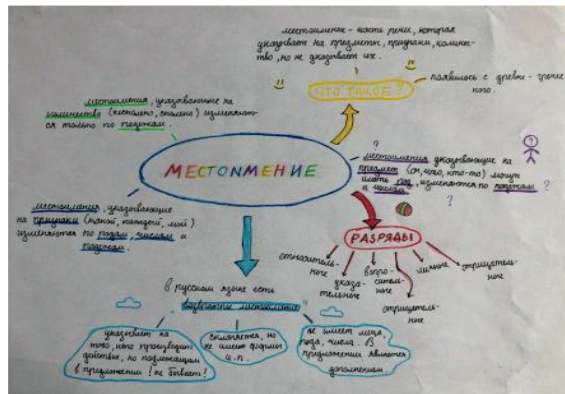 местоимение - часть речи, которая
указывает на предметы, признаки, количе-
ство, но не указывает их.
ЧТО ТАКОЕ?
появилось с древне-грече
кого.
местоимения, указывающие на
количество (несколько, столько) изменяют-
ся только по падежам.
МЕСТОИМЕНИЕ
?
местоимения указывающие на
предмет (он, что, кто-то) могут
иметь род, изменяются по падежам ?
и числам
?
?
местоимения, указывающие
на признаки (какой, каждый, мой)
изменяются по родам, числам и
падежам.
РАЗРЯДЫ
относитель-
ные
указа-
тельные
вопро-
ситель-
ные
личные
отрицатель-
ные
отрицатель-
ные
в русском языке есть
возвратные местоимения
указывает на
того, кто производит
действие, но подлежащим
в предложении ! не бывает!
склоняется, но
не имеет формы
и.п.
не имеет лица,
рода, числа. В
предложении является
дополнением.